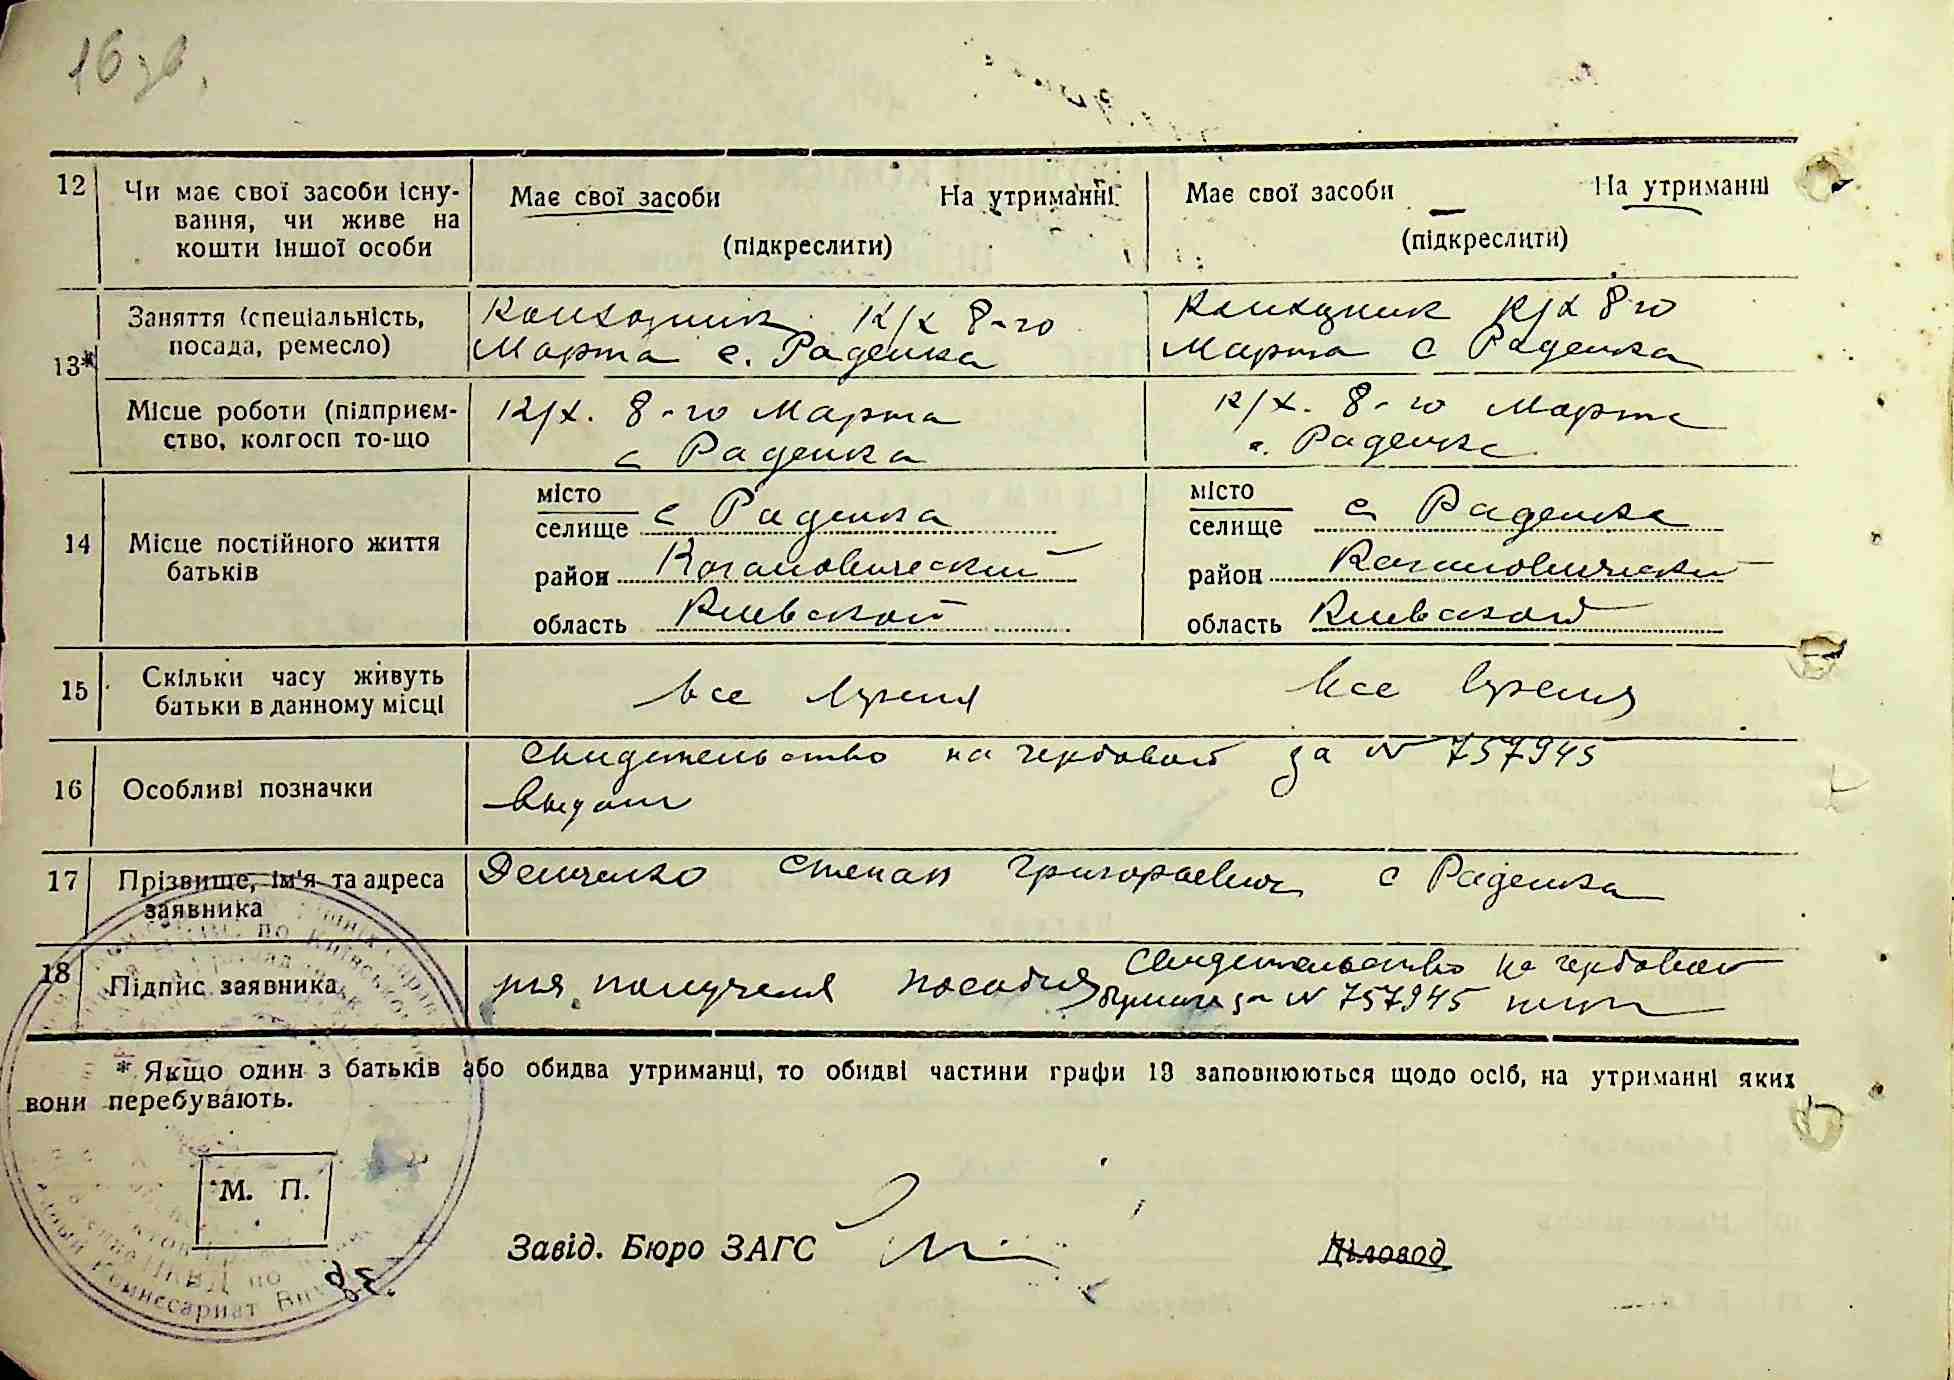 16 зв.
12 Чи має свої засоби існу-
вання, чи живе на
кошти іншої особи
Має свої засоби На утриманні
(підкреслити)
Має свої засоби На утриманні
(підкреслити)
13*
Заняття (спеціальність,
посада, ремесло)
Колхозник К/х 8-го
Марта с. Раденка
Колхозник К/х 8-го
Марта с Раденка
Місце роботи (підприєм-
ство, колгосп то-що
К/х. 8-го Марта
с Раденка
К/х. 8-го Марта
с. Раденка
14 Місце постійного життя
батьків
місто
селище с Раденка
район Кагановический
область Киевской
місто
селище с Раденка
район Кагановический
область Киевской
15 Скільки часу живуть
батьки в данному місці
все время
все время
16 Особливі позначки
Свидетельство на гербовой за № 757945
выдано
17 Прізвище, ім'я та адреса
заявника
Демченко Степан Григорьевич с Раденка
18 Підпис заявника
для получения пособия
Свидетельство на гербовой
бумаге за № 757945
* Якщо один з батьків або обидва утриманці, то обидві частини графи 13 заповнюються щодо осіб, на утриманні яких
вони перебувають.
М. П.
Завід. Бюро ЗАГС
Діловод